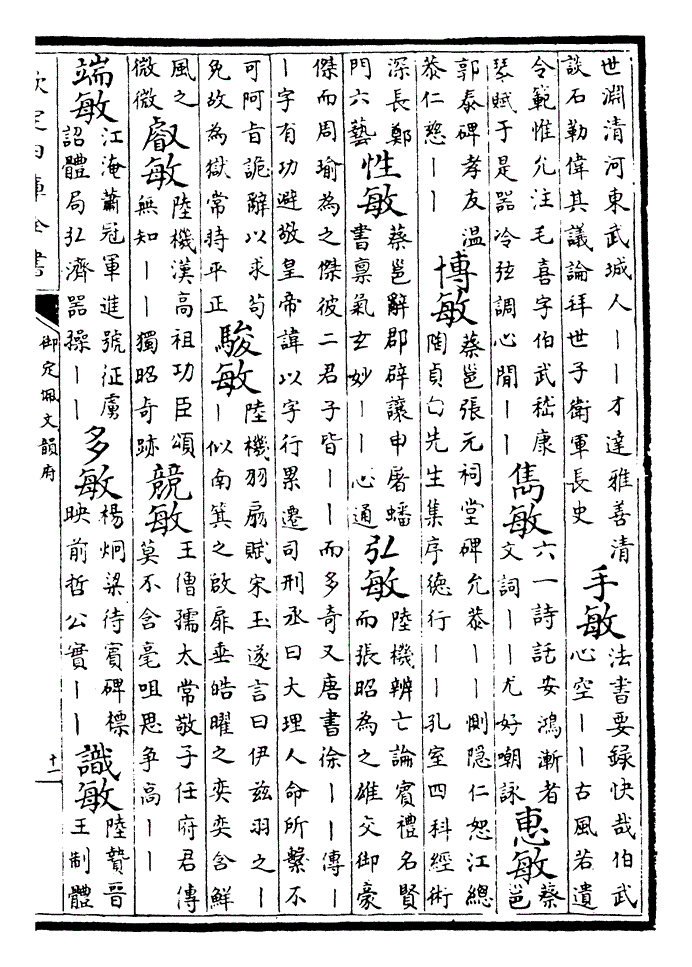 世淵清河東武城人丨丨才達雅善清
談石勒偉其議論拜世子衛軍長史
手敏
法書要錄快哉伯武
心空丨丨古風若遺
令範惟允注毛喜字伯武嵇康
琴賦于是器冷弦調心閒丨丨
雋敏
六一詩話安鴻漸者
文詞丨丨尤好嘲詠
惠敏
蔡
邕
郭泰碑孝友温
恭仁慈丨丨
博敏
蔡邕張元祠堂碑允恭丨丨惻隐仁恕江總
陶貞白先生集序德行丨丨孔室四科經術
深長鄭
門六藝
性敏
蔡邕辭郡辟讓申屠蟠
書禀氣玄妙丨丨心通
弘敏
陸機辨亡論賓禮名賢
而張昭為之雄交御豪
傑而周瑜為之傑彼二君子皆丨丨而多奇又唐書徐丨丨傳丨
丨字有功避敬皇帝諱以字行累遷司刑丞曰大理人命所繫不
可阿旨詭辭以求苟
免故為獄常時平正
駿敏
陸機羽扇賦宋玉遂言曰伊兹羽之丨
丨似南箕之啟扉垂皓曜之奕奕含鮮
風之
微微
叡敏
陸機漢高祖功臣頌
無知丨丨獨昭奇跡
競敏
王僧孺太常敬子任府君傳
莫不含毫咀思争高丨丨
端敏
江淹蕭冠軍進號征虜
詔體局弘濟器操丨丨
多敏
楊炯梁待賓碑標
映前哲公實丨丨
識敏
陸贄晉
王制體
欽定四庫全書
御定佩文韻府
十一